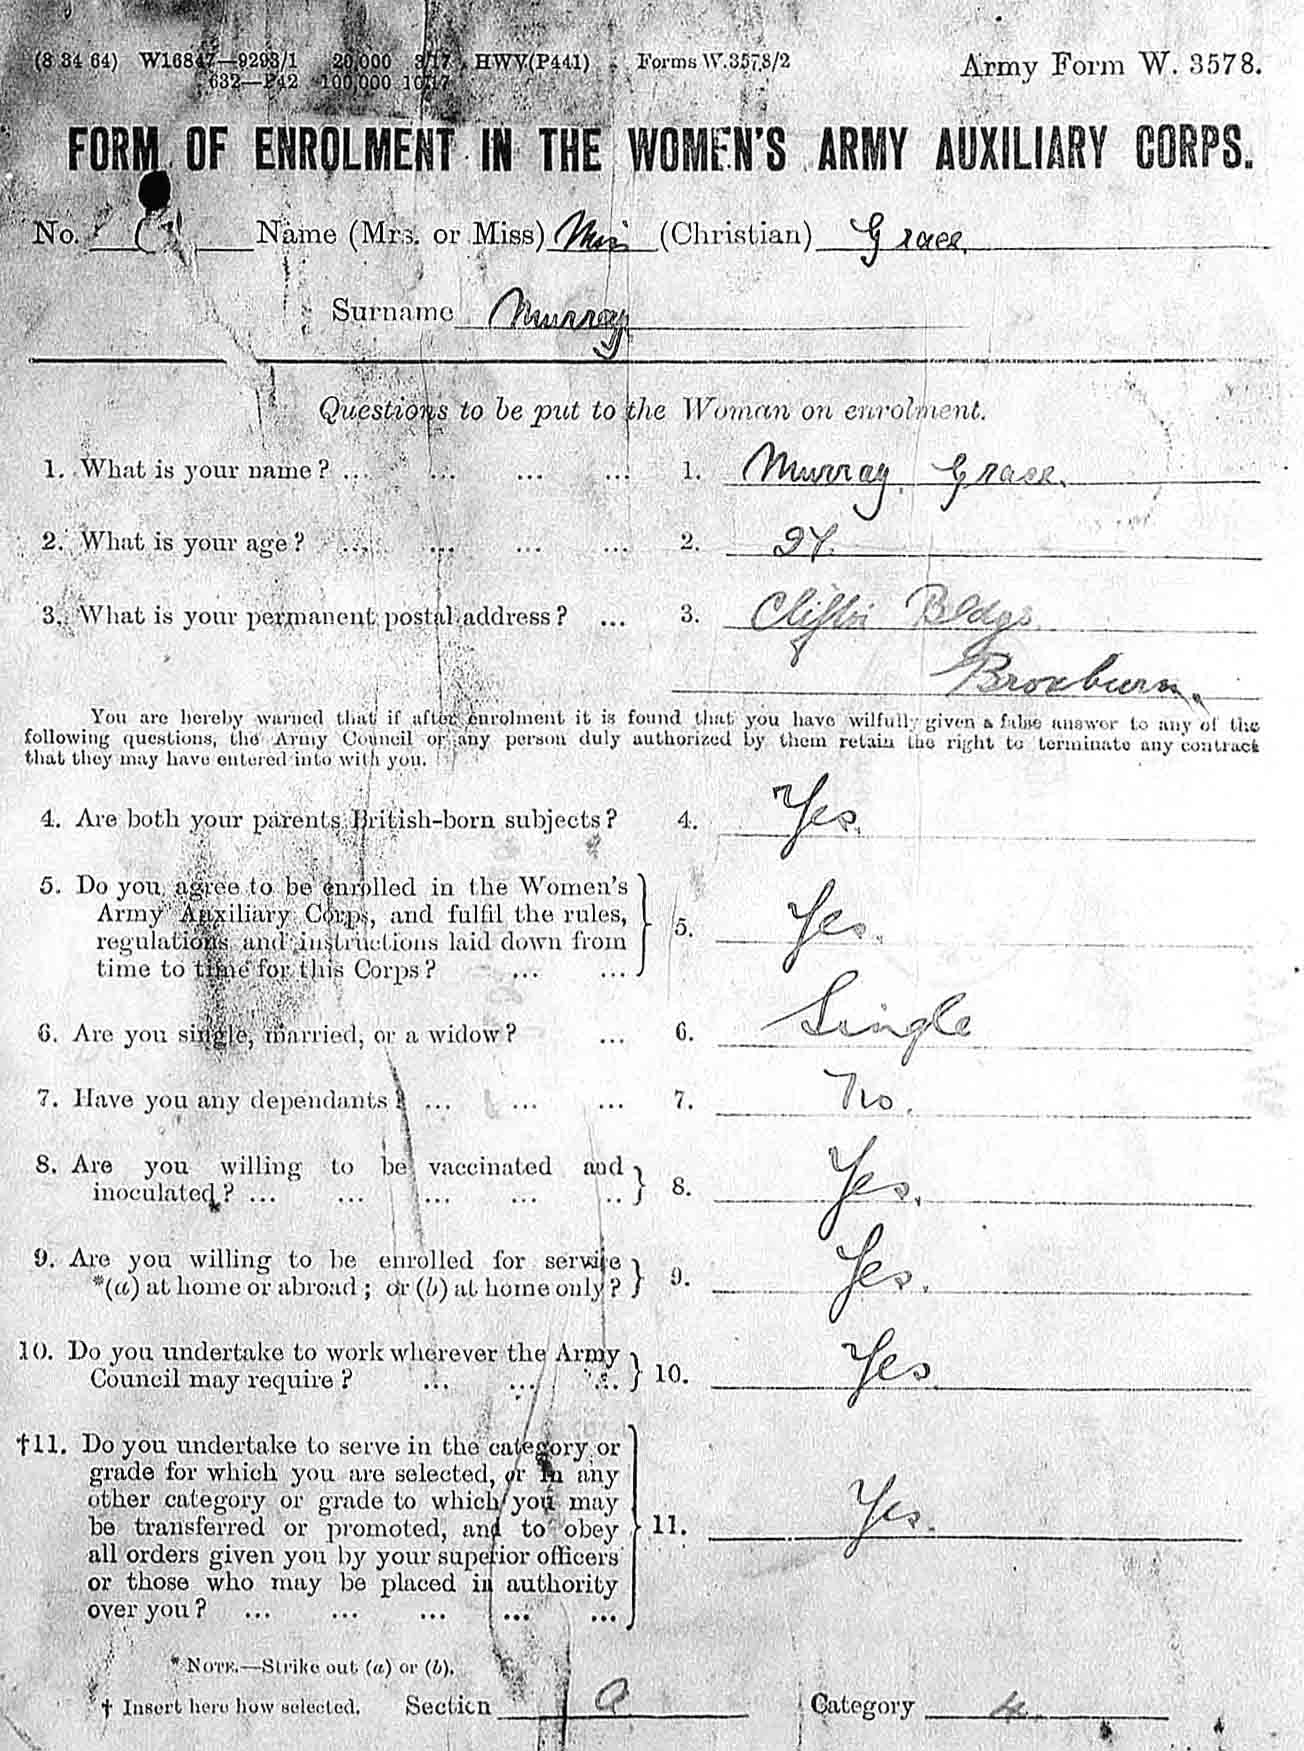 (8 34 64) W16847—9293/1 20,000 3/17 HWV(P441) Forms W.3578/2
632—P42 100,000 10/17
Army Form W. 3578.
FORM OF ENROLMENT IN THE WOMEN'S ARMY AUXILIARY CORPS.
No. Name (Mrs. or Miss) Miss (Christian) Grace.
Surname Murray
Questions to be put to the Woman on enrolment.
1. What is your name? ... ... ... ... 1. Murray, Grace.
2. What is your age? ... ... ... ... 2. 27.
3. What is your permanent postal address? ... 3. Clifton Bldgs
Broxburn.
You are hereby warned that if after enrolment it is found that you have wilfully given a false answer to any of the
following questions, the Army Council or any person duly authorized by them retain the right to terminate any contract
that they may have entered into with you.
4. Are both your parents British-born subjects? 4. Yes.
5. Do you agree to be enrolled in the Women's
Army Auxiliary Corps, and fulfil the rules,
regulations and instructions laid down from
time to time for this Corps? ... ... 5. Yes.
6. Are you single, married, or a widow? ... 6. Single
7. Have you any dependants? ... ... ... 7. No.
8. Are you willing to be vaccinated and
inoculated? ... ... ... ... ... 8. Yes.
9. Are you willing to be enrolled for service
*(a) at home or abroad; or (b) at home only? 9. Yes.
10. Do you undertake to work wherever the Army
Council may require? ... ... ... 10. Yes
†11. Do you undertake to serve in the category or
grade for which you are selected, or in any
other category or grade to which you may
be transferred or promoted, and to obey
all orders given you by your superior officers
or those who may be placed in authority
over you? ... ... ... ... ... 11. Yes.
* NOTE.—Strike out (a) or (b).
† Insert here how selected. Section a Category 4